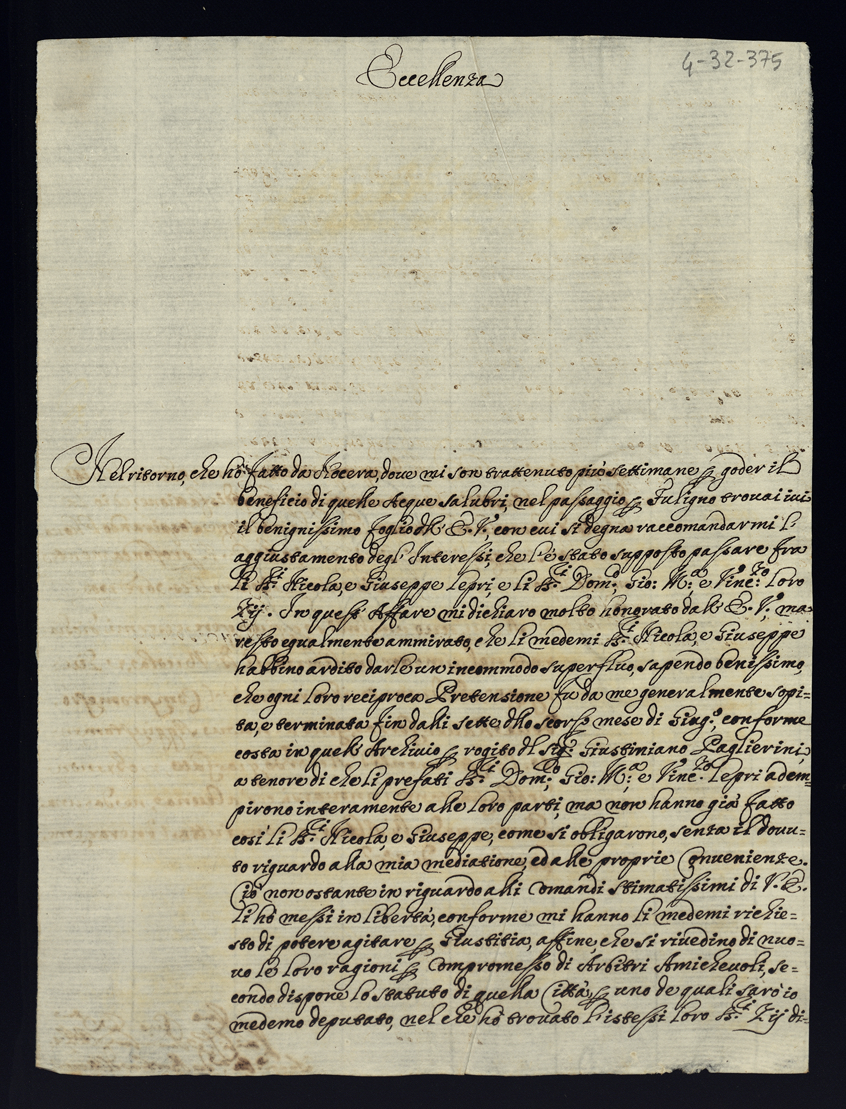 4-32-375
Eccellenza
Nel ritorno, che hò fatto da Nocera, dove mi son trattenuto più settimane p goder il
beneficio di quelle Acque salubri, nel passaggio p Fuligno trovai ivi
il benignissimo foglio dll' E. V., con cui si degna raccomandarmi l'
aggiustamento degl' Interessi, che l'è stato supposto passare fra
li SS.ri Nicola, e Giuseppe Lepri, e li SS.ri Dom.co, Gio: M.a, e Vinc.zo loro
Zij. In quest' Affare mi dichiaro molto honorato dall' E. V., ma
resto egualmente ammirato, che li medemi SS.ri Nicola, e Giuseppe
habbino ardito darle un incommodo superfluo, sapendo benissimo,
che ogni loro reciproca Pretensione fù da me generalmente sopi=
ta, e terminata fin dalli sette dllo scorso mese di Giug.o, conforme
costa in quell' Archivio p rogito dl Sig.r Giustiniano Paglierini,
a tenore di che li prefati SS.ri Dom.co, Gio: M.a, e Vinc.zo Lepri adem=
pirono interamente alle loro parti, ma non hanno già fatto
così li SS.ri Nicola, e Giuseppe, come si obligarono, senza il dovu=
to riguardo alla mia mediatione, ed alle proprie Convenienze.
Ciò non ostante in riguardo alli Comandi stimatissimi di V. E.
li hò messi in libertà, conforme mi hanno li medemi richie=
sto di potere agitare p Giustitia, affine, che si rivedino di nuo=
vo le loro ragioni p Compromesso di Arbitri Amichevoli, se=
condo dispone lo statuto di quella Città, p uno de quali sarò io
medemo deputato, nel che hò trovato l'istessi loro SS.ri Zij di=